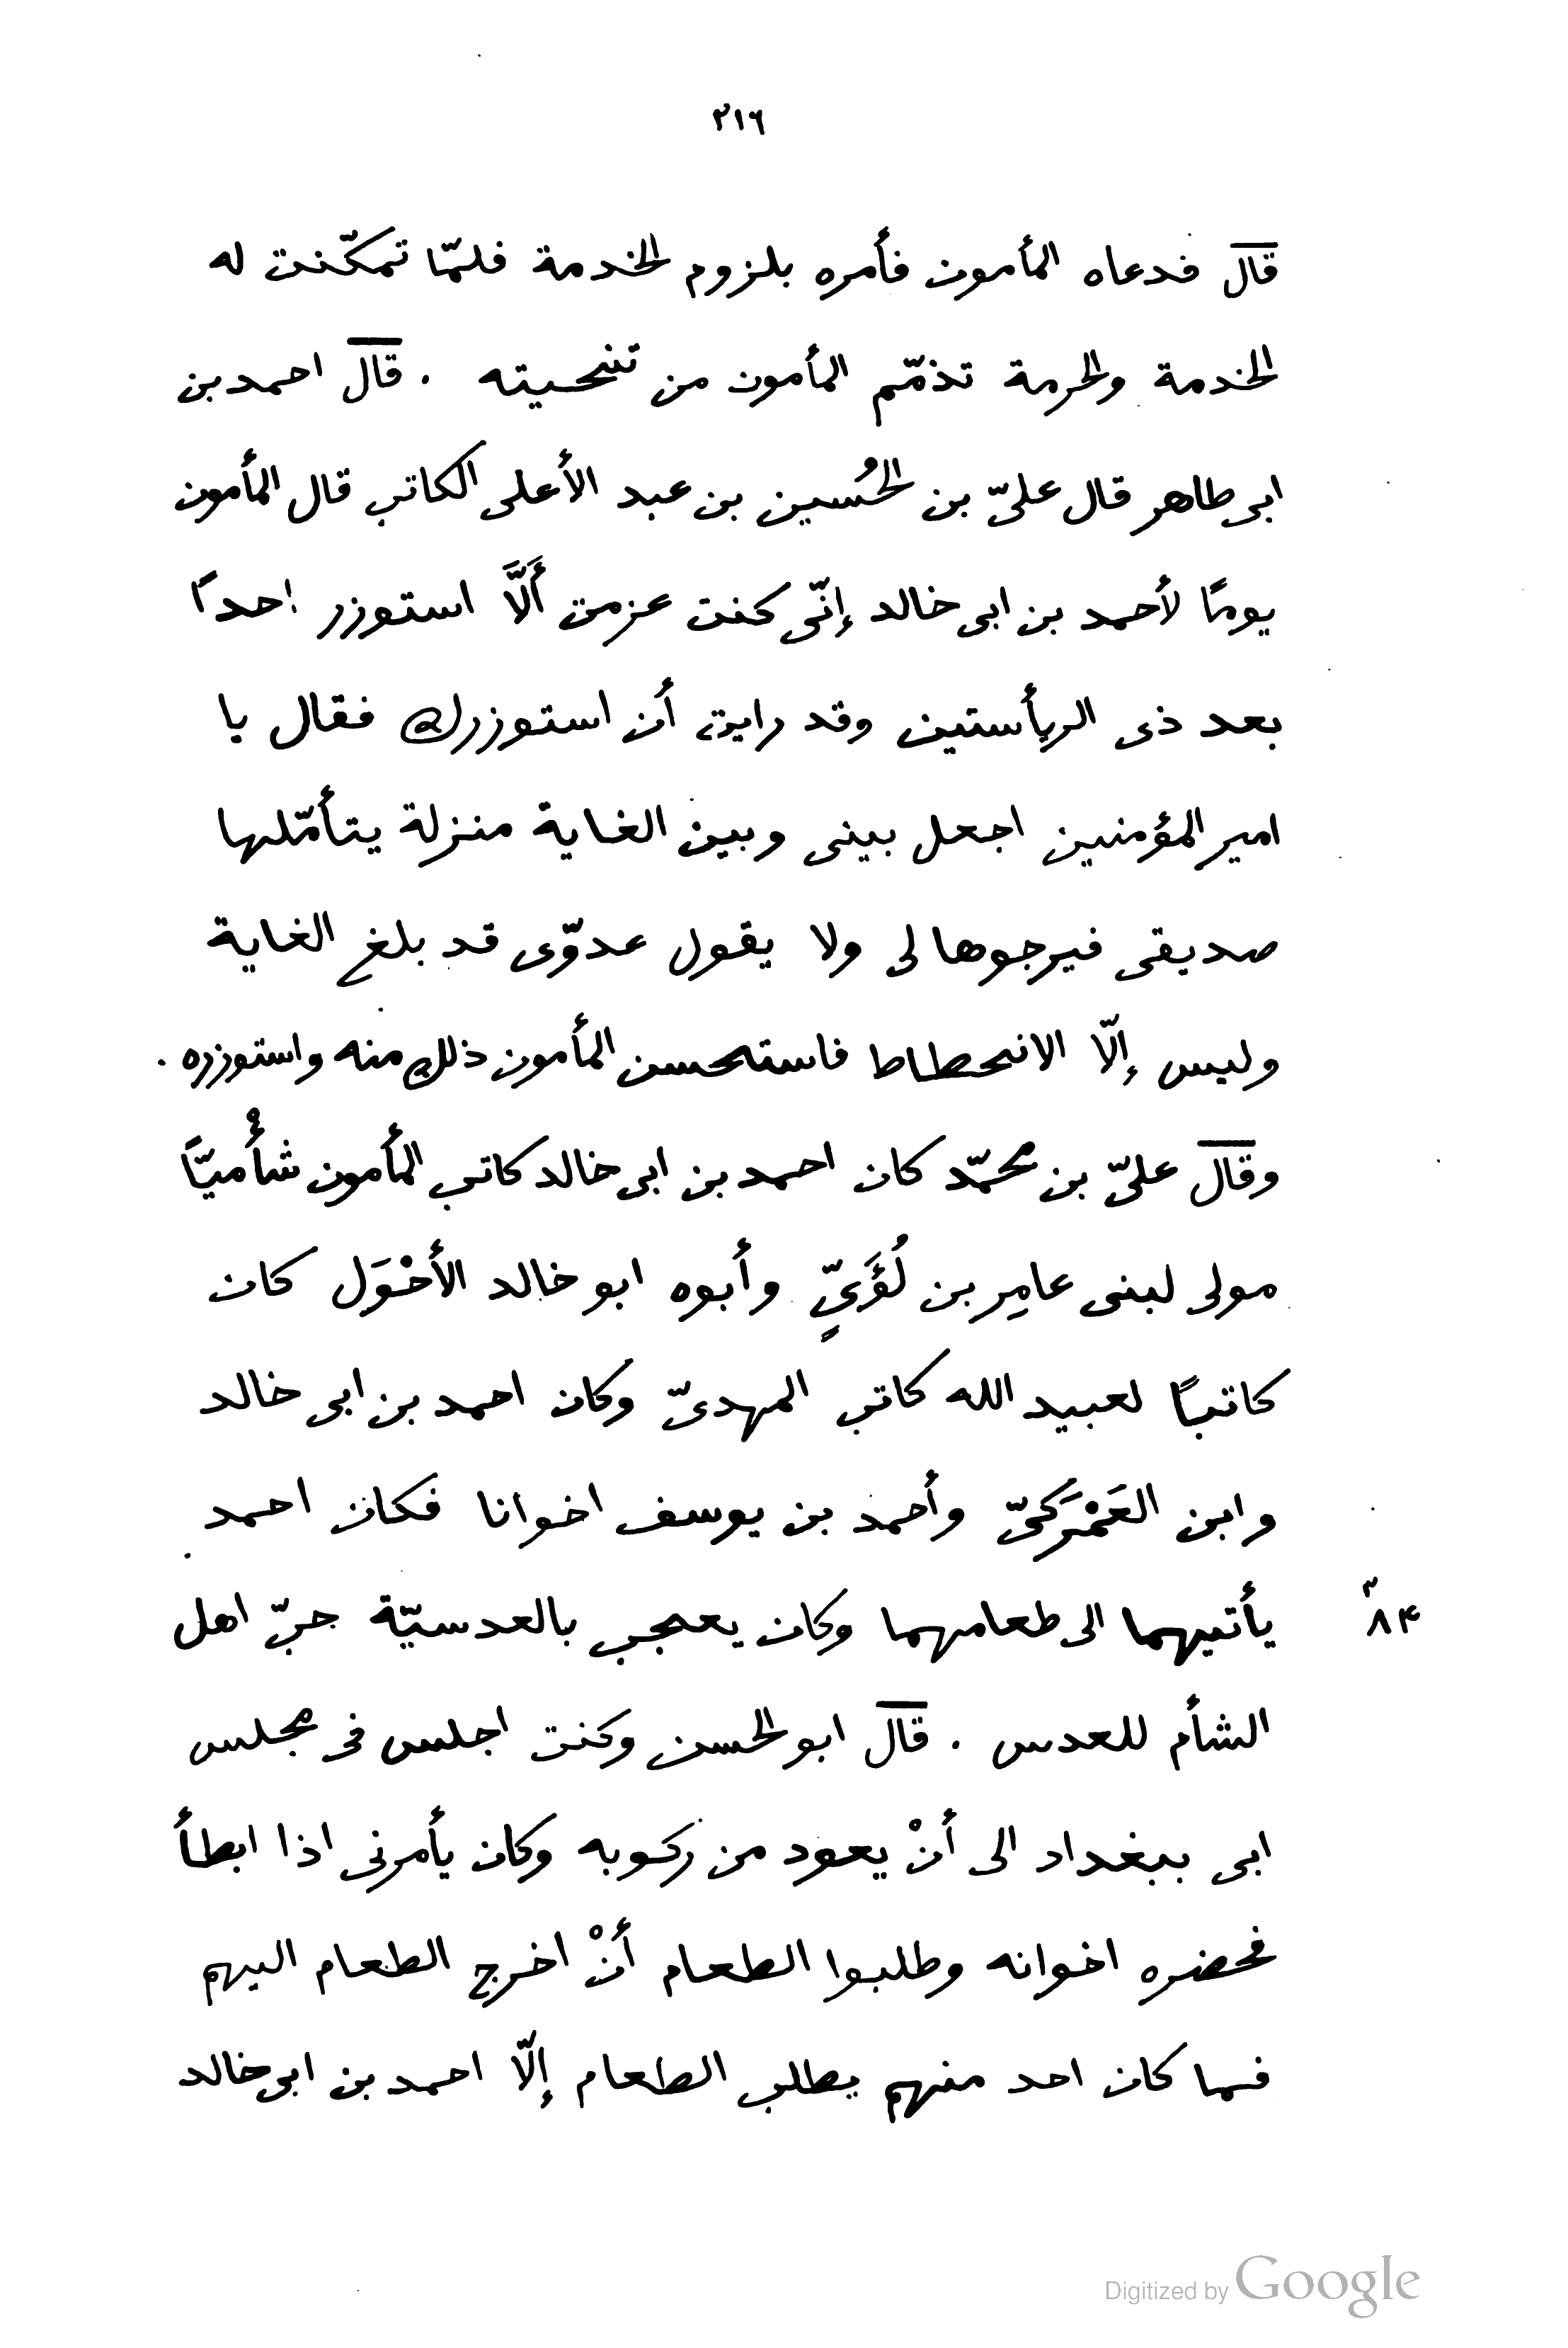 ٢١٦
قال فدعاه المأمون فأمره بلزوم الخدمة فلمّا تمكّنت له
الخدمة والحرمة تذمّم المأمون من تنحيته . قال احمد بن
ابى طاهر قال علىّ بن الحُسين بن عبد الأعلى الكاتب قال المأمون
يومًا لأحمد بن ابى خالد إنّى كنت عزمت أَلَّا استوزر احدًا
بعد ذى الريأستين وقد رايت أن استوزرك فقال يا
امير المؤمنين اجعل بينى وبين الغاية منزلة يتأمّلها
صديقى فيرجوها لى ولا يقول عدوّى قد بلغ الغاية
وليس إلّا الانحطاط فاستحسن المأمون ذلك منه واستوزره .
وقال علىّ بن محمّد كان احمد بن ابى خالد كاتب المأمون شأْميّاً
مولى لبنى عامِر بن لُؤَيٍّ وأبوه ابو خالد الأحْوَل كان
كاتبًا لعبيد الله كاتب المهدىّ وكان احمد بن ابى خالد
وابن العَمْرَكىّ وأحمد بن يوسف اخوانا فكان احمد
يأتيهما الى طعامهما وكان يعجب بالعدسيّة حبّ اهل
الشأم للعدس . قال ابو الحسن وكنت اجلس فى مجلس
ابى ببغداد الى أنْ يعود من ركوبه وكان يأمرنى اذا ابطأ
فحضره اخوانه وطلبوا الطعام أنْ اخرج الطعام اليهم
فما كان احد منهم يطلب الطعام إلّا احمد بن ابى خالد
Digitized by Google